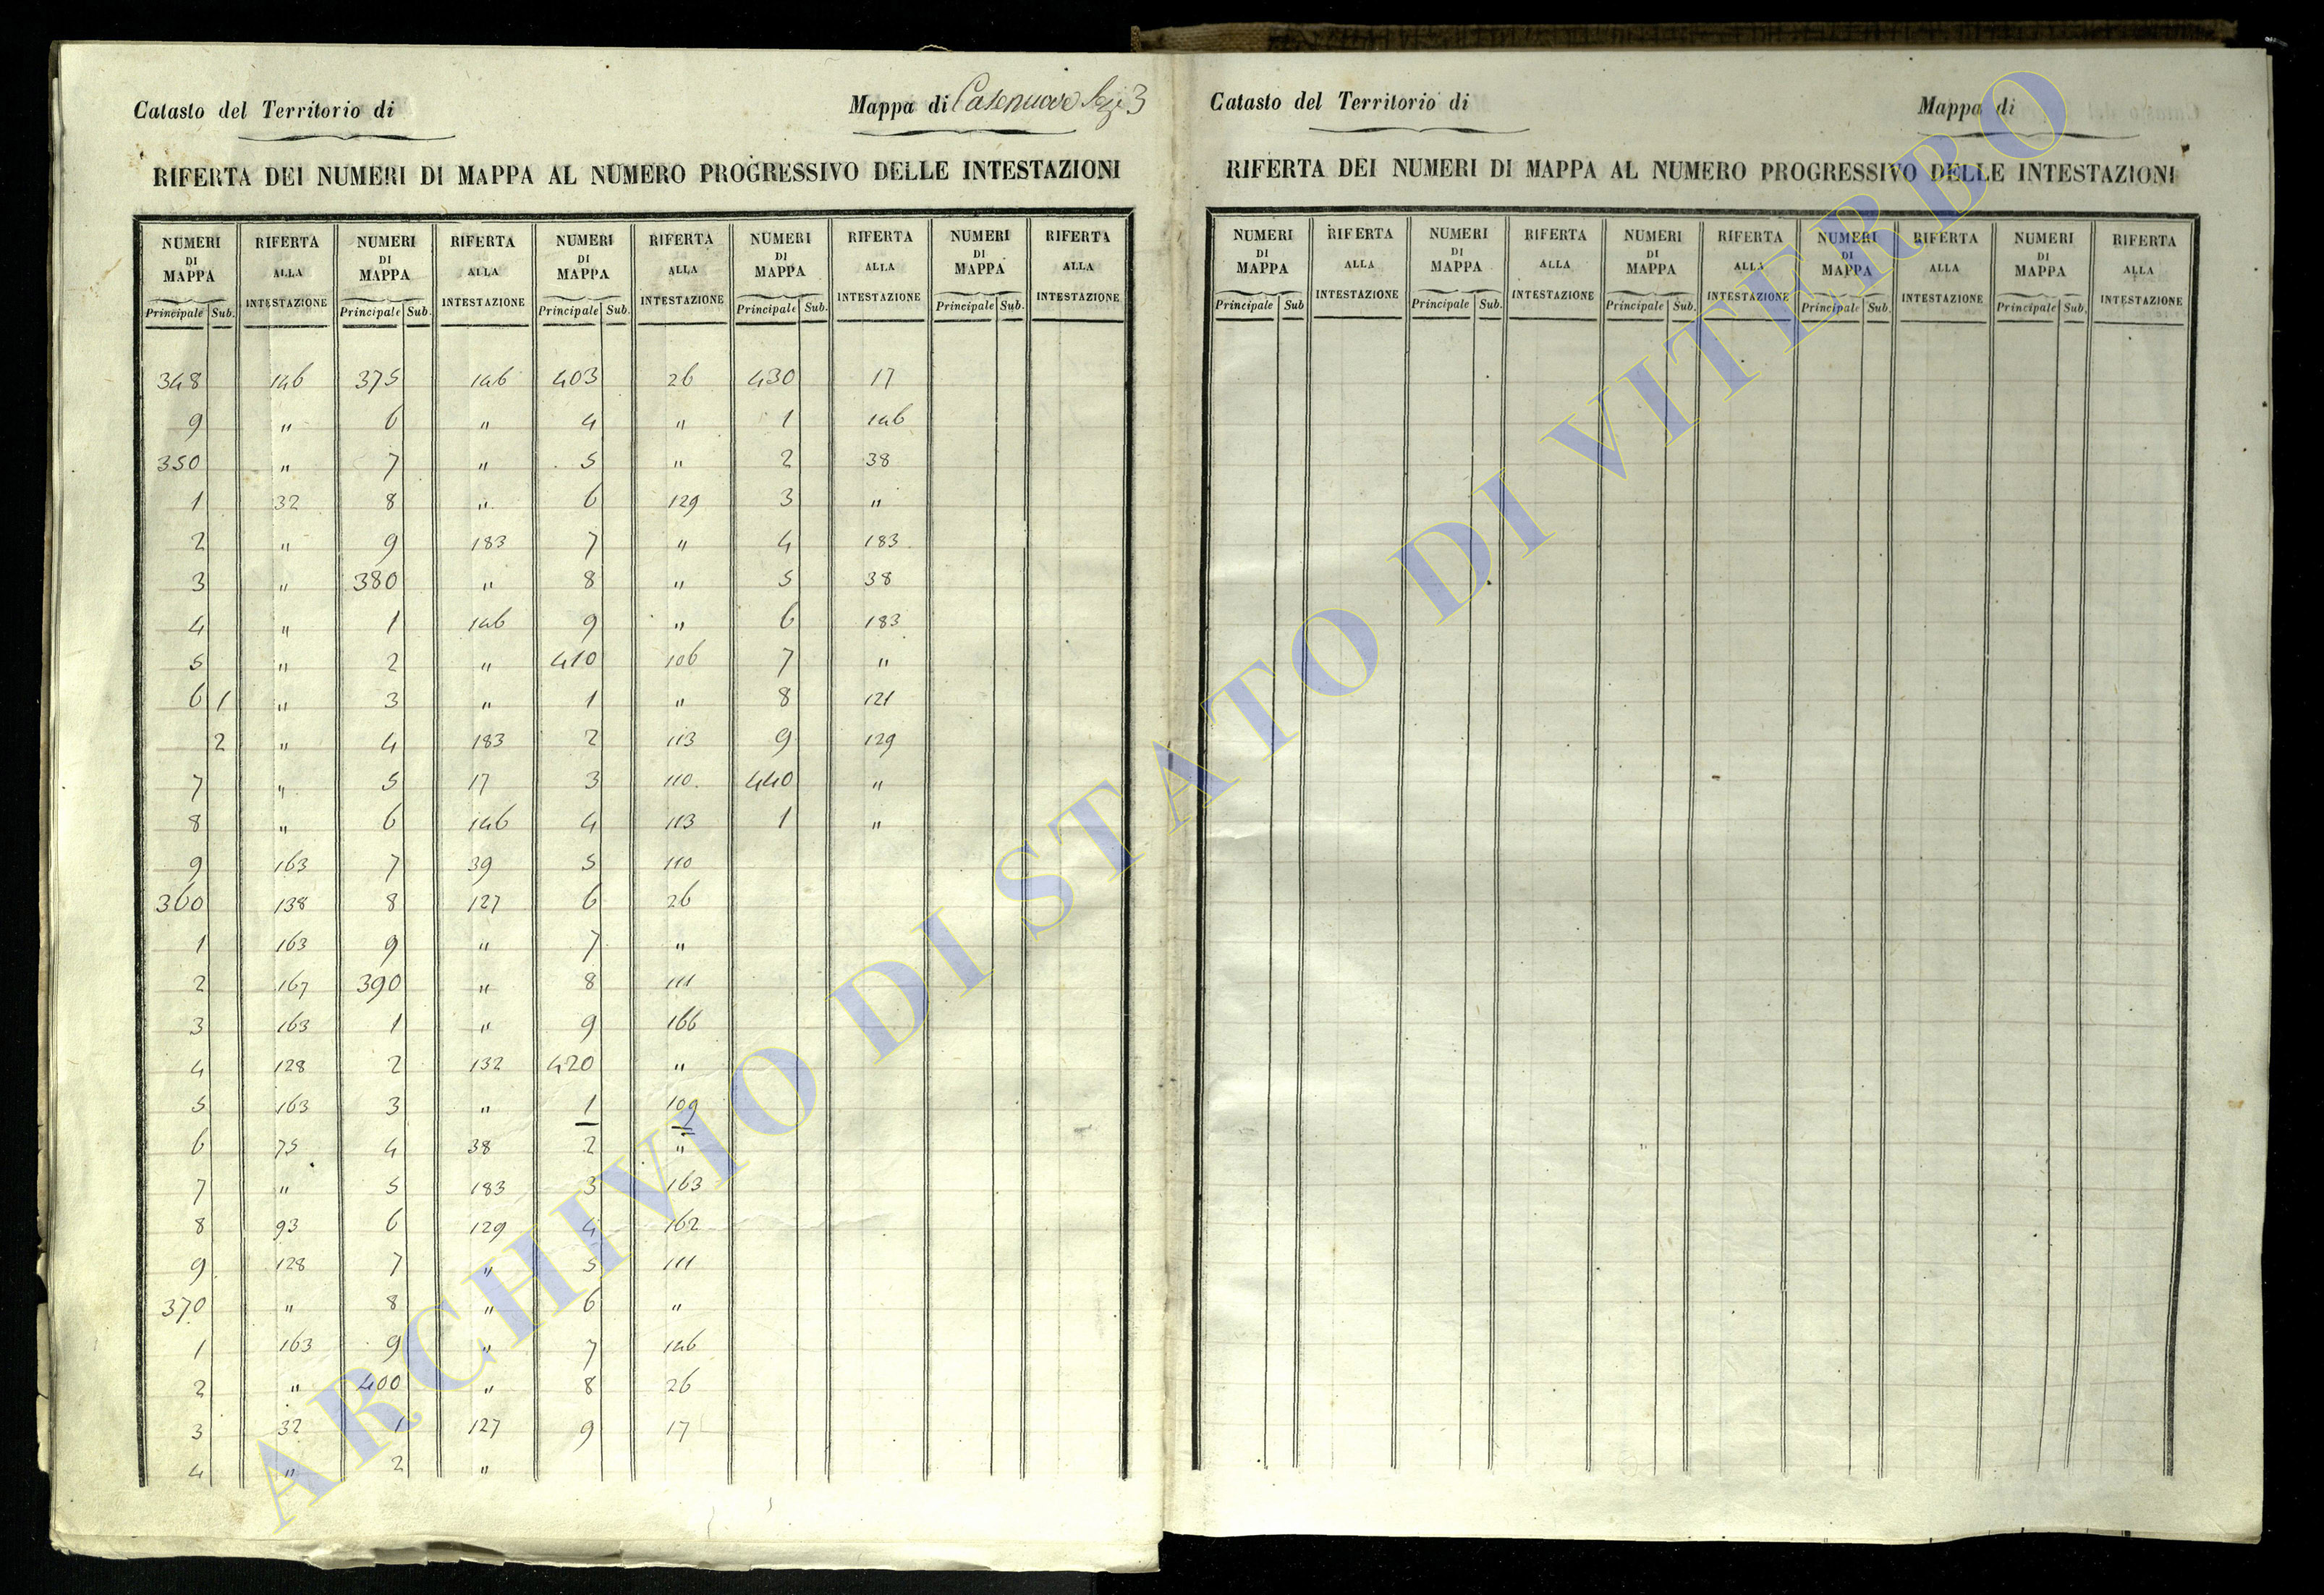 Catasto del Territorio di Mappa di Casenuove Sez. 3
RIFERTA DEI NUMERI DI MAPPA AL NUMERO PROGRESSIVO DELLE INTESTAZIONI
NUMERI DI MAPPA RIFERTA ALLA INTESTAZIONE NUMERI DI MAPPA RIFERTA ALLA INTESTAZIONE NUMERI DI MAPPA RIFERTA ALLA INTESTAZIONE NUMERI DI MAPPA RIFERTA ALLA INTESTAZIONE NUMERI DI MAPPA RIFERTA ALLA INTESTAZIONE
Principale Sub. Principale Sub. Principale Sub. Principale Sub. Principale Sub.
348 146 375 146 403 26 430 17
9 " 6 " 4 " 1 146
350 " 7 " 5 " 2 38
1 32 8 " 6 129 3 "
2 " 9 183 7 " 4 183
3 " 380 " 8 " 5 38
4 " 1 146 9 " 6 183
5 " 2 " 410 106 7 "
6 1 " 3 " 1 " 8 121
2 " 4 183 2 113 9 129
7 " 5 17 3 110 440 "
8 " 6 146 4 113 1 "
9 163 7 39 5 110
360 138 8 127 6 26
1 163 9 " 7 "
2 167 390 " 8 111
3 163 1 " 9 166
4 128 2 132 420 "
5 163 3 " 1 109
6 75 4 38 2 "
7 " 5 183 3 163
8 93 6 129 4 162
9 128 7 " 5 111
370 " 8 " 6 "
1 163 9 " 7 146
2 " 400 " 8 26
3 32 1 127 9 17
4 " 2 "
Catasto del Territorio di Mappa di
RIFERTA DEI NUMERI DI MAPPA AL NUMERO PROGRESSIVO DELLE INTESTAZIONI
NUMERI DI MAPPA RIFERTA ALLA INTESTAZIONE NUMERI DI MAPPA RIFERTA ALLA INTESTAZIONE NUMERI DI MAPPA RIFERTA ALLA INTESTAZIONE NUMERI DI MAPPA RIFERTA ALLA INTESTAZIONE NUMERI DI MAPPA RIFERTA ALLA INTESTAZIONE
Principale Sub Principale Sub. Principale Sub. Principale Sub. Principale Sub.
ARCHIVIO DI STATO DI VITERBO